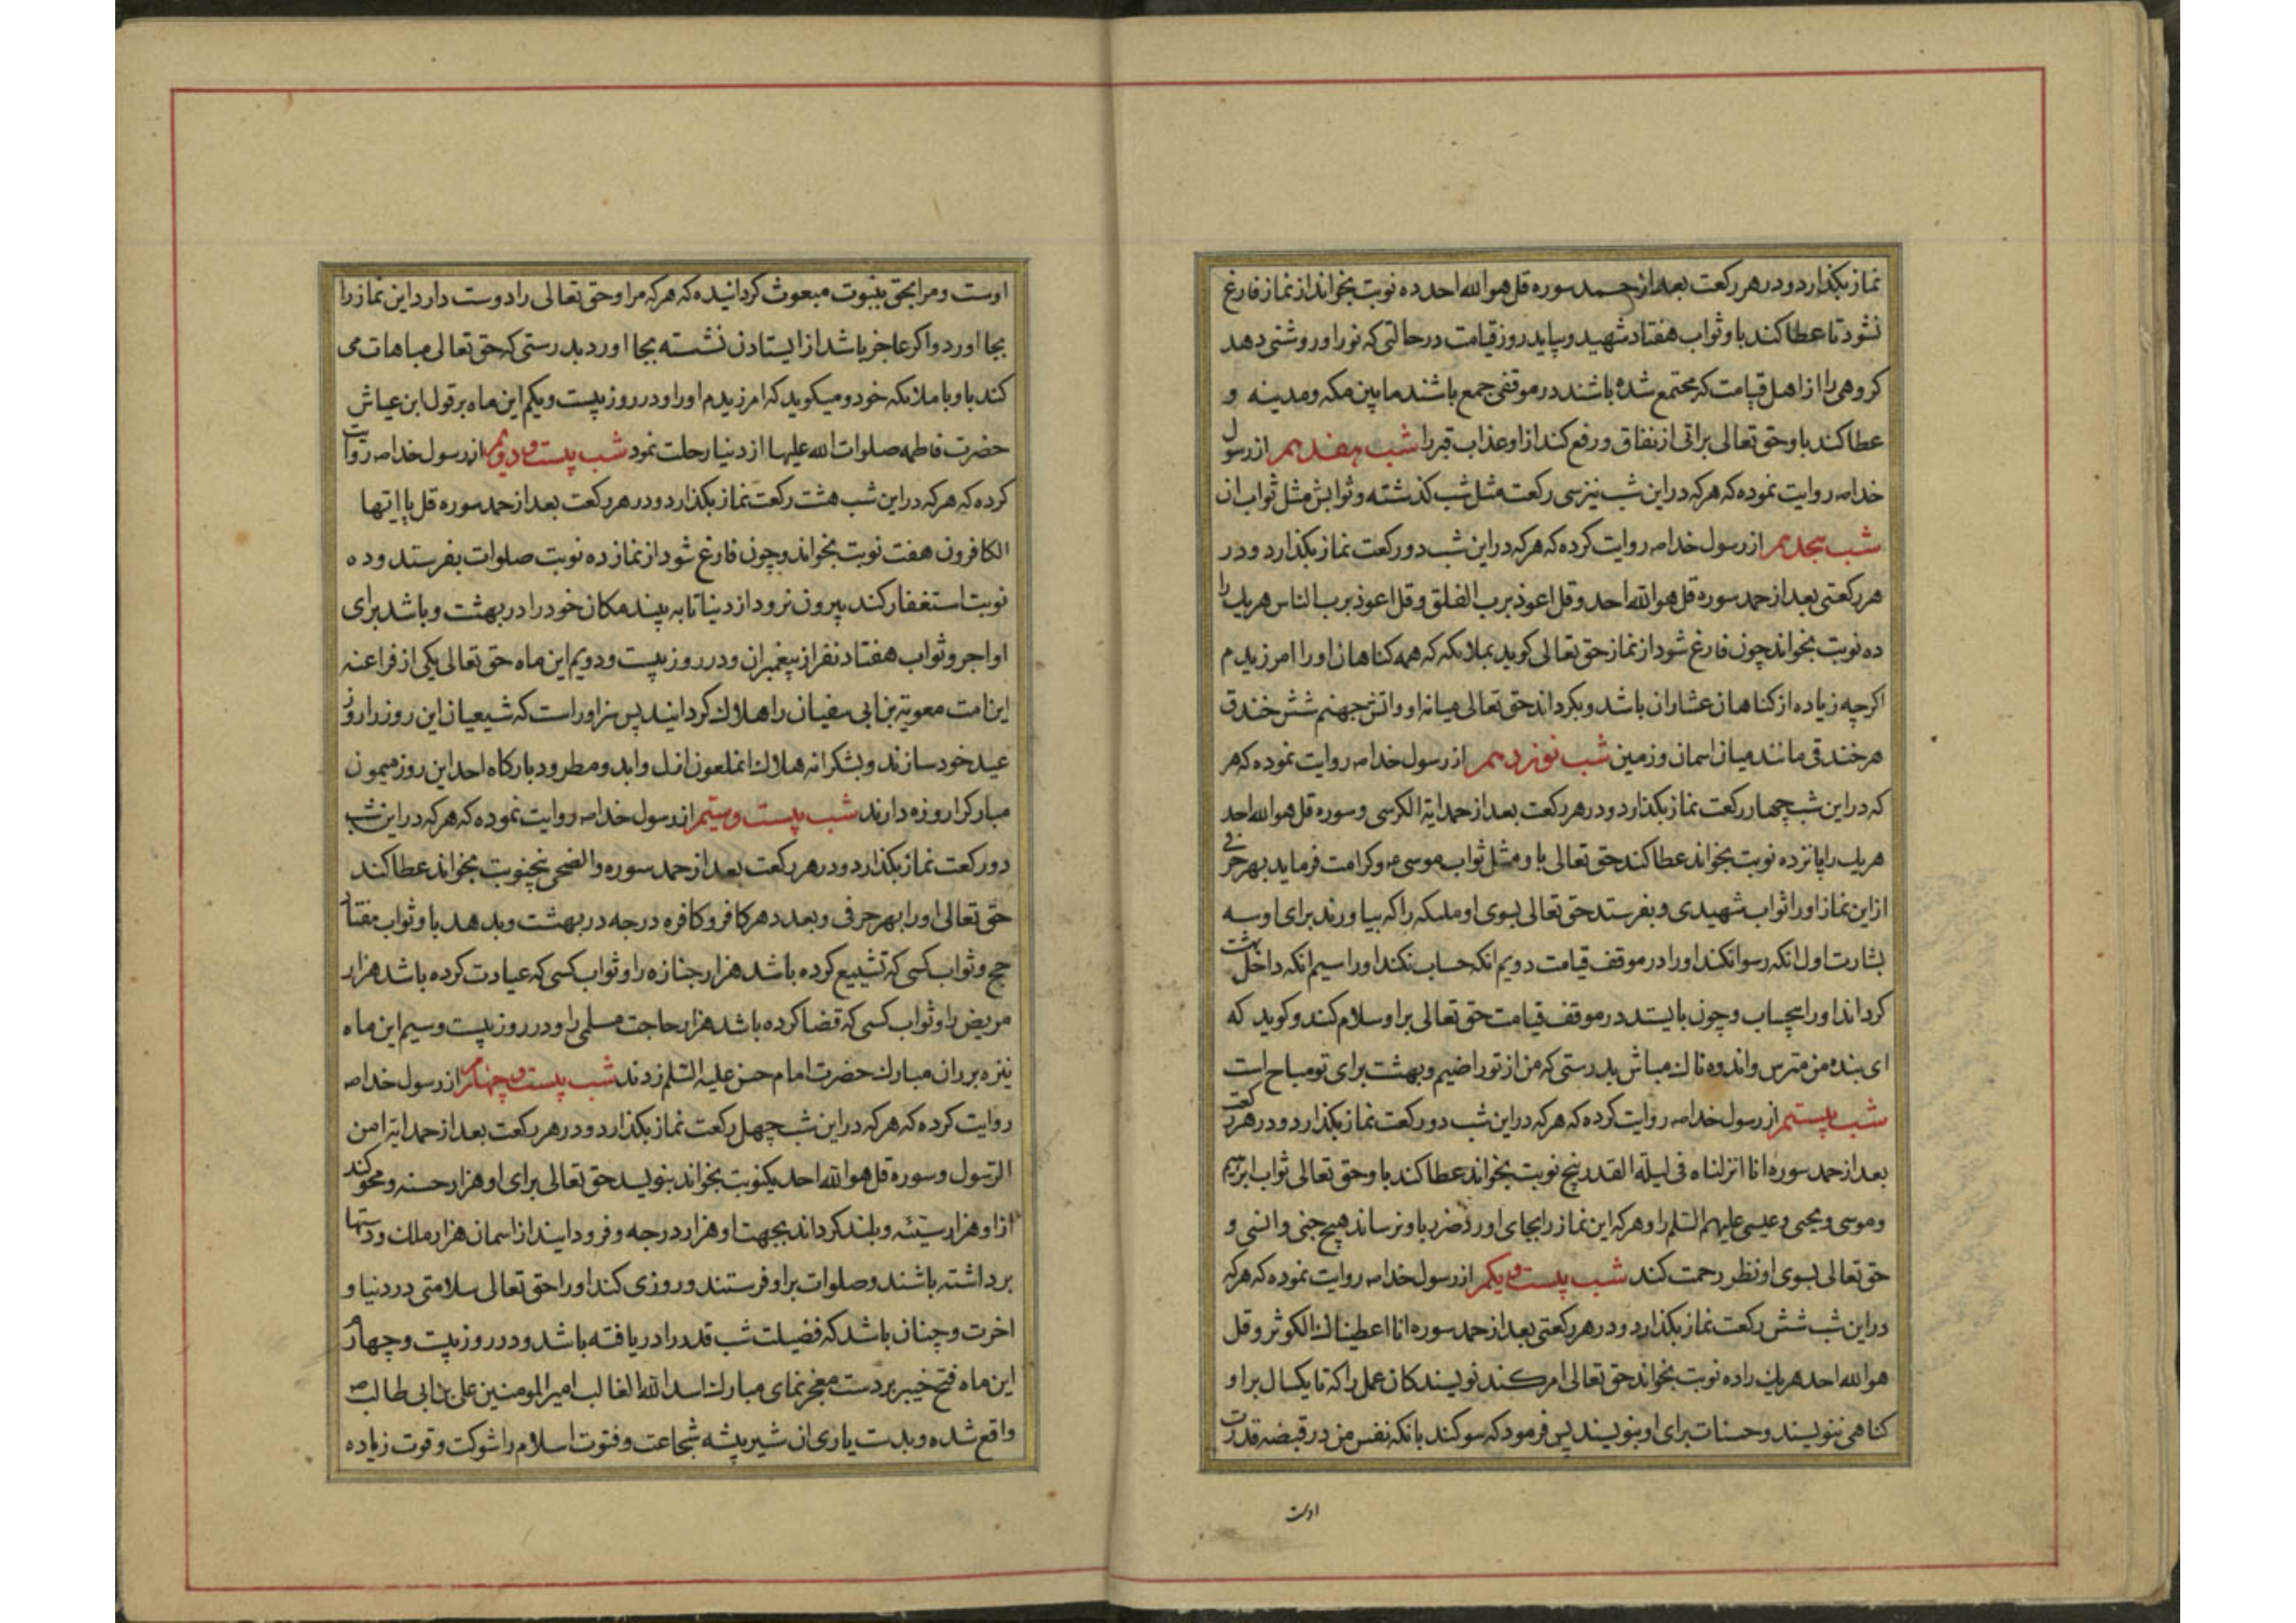 نماز بکذارد و در هر رکعت بعد از حمد سوره قل هو الله احد ده نوبت بخواند از نماز فارغ
نشود تا عطا کند باو ثواب هفتاد شهید و بیاید روز قیامت در حالتی که نور او روشنی دهد
کروهی را از اهل قیامت که مجتمع شده باشند در موقفی جمع باشند مابین مکه و مدینه و
عطا کند باو حق تعالی براتی از نفاق و رفع کند از او عذاب قبر را شب هفدهم از رسول
خدا ص روایت نموده که هر که در این شب نیز سی رکعت مثل شب کذشته و ثوابش مثل ثواب ان
شب هیجدهم از رسول خدا ص روایت کرده که هر که در این شب دو رکعت نماز بکذارد و در
هر رکعتی بعد از حمد سوره قل هو الله احد و قل اعوذ برب الفلق و قل اعوذ برب الناس هر یک را
ده نوبت بخواند چون فارغ شود از نماز حق تعالی کوید بملائکه که همه کناهان او را امرزیدم
اکرچه زیاده از کناهان عشاران باشد و بکرداند حق تعالی میانه او و اتش جهنم شش خندق
هر خندقی مانند میان اسمان و زمین شب نوزدهم از رسول خدا ص روایت نموده که هر
که در این شب چهار رکعت نماز بکذارد و در هر رکعت بعد از حمد ایة الکرسی و سوره قل هو الله احد
هر یک را پانزده نوبت بخواند عطا کند حق تعالی باو مثل ثواب موسی ع و کرامت فرماید بهر حرفی
از این نماز او را ثواب شهیدی و بفرستد حق تعالی بسوی او ملئکه را که بیاورند برای او سه
بشارت اول انکه رسوا نکند او را در موقف قیامت دویم انکه حساب نکند او را سیم انکه داخل بهشت
کرداند او را بیحساب و چون بایستد در موقف قیامت حق تعالی بر او سلام کند و کوید که
ای بنده من مترس و اندوه ناک مباش بدرستی که من از تو راضیم و بهشت برای تو مباح است
شب بیستم از رسول خدا ص روایت کرده که هر که در این شب دو رکعت نماز بکذارد و در هر رکعت
بعد از حمد سوره انا انزلناه فی لیلة القدر پنج نوبت بخواند عطا کند باو حق تعالی ثواب ابرهیم
و موسی و یحیی و عیسی علیهم السلم را و هر که این نماز را بجای اورد ضرر باو نرساند هیچ جنی و انسی و
حق تعالی بسوی او نظر رحمت کند شب بیست و یکم از رسول خدا ص روایت نموده که هر که
در این شب شش رکعت نماز بکذارد و در هر رکعتی بعد از حمد سوره انا اعطیناک الکوثر و قل
هو الله احد هر یک را ده نوبت بخواند حق تعالی امر کند نویسندکان عمل را که تا یکسال بر او
کناهی ننویسند و حسنات برای او بنویسند پس فرمود که سوکند بانکه نفس من در قبضه قدرت
اوست
اوست و مرا بحق بنبوت مبعوث کردانیده که هر که مرا و حق تعالی را دوست دارد این نماز را
بجا اورد و اکر عاجز باشد از ایستادن نشسته بجا اورد بدرستی که حق تعالی مباهات می
کند باو با ملائکه خود و میکوید که امرزیدم او را و در روز بیست و یکم این ماه بر قول ابن عیاش
حضرت فاطمه صلوات الله علیها از دنیا رحلت نمود شب بیست و دویم از رسول خدا ص روایت
کرده که هر که در این شب هشت رکعت نماز بکذارد و در هر رکعت بعد از حمد سوره قل یا ایها
الکافرون هفت نوبت بخواند و چون فارغ شود از نماز ده نوبت صلوات بفرستد و ده
نوبت استغفار کند بیرون نرود از دنیا تا به بیند مکان خود را در بهشت و باشد برای
او اجر و ثواب هفتاد نفر از پیغمبران و در روز بیست و دویم این ماه حق تعالی یکی از فراعنه
این امت معویة بن ابی سفیان را هلاک کردانید پس سزاور است که شیعیان این روز را روز
عید خود سازند و بشکرانه هلاک انملعون ازل و ابد و مطرود بارکاه احد این روز میمون
مبارکرا روزه دارند شب بیست و سیم از رسول خدا ص روایت نموده که هر که در این شب
دو رکعت نماز بکذارد و در هر رکعت بعد از حمد سوره والضحی پنجنوبت بخواند عطا کند
حق تعالی او را بهر حرفی و بعدد هر کافر و کافره درجه در بهشت و بدهد باو ثواب هفتاد
حج و ثواب کسی که تشییع کرده باشد هزار جنازه را و ثواب کسی که عیادت کرده باشد هزار
مریض را و ثواب کسی که قضا کرده باشد هزار حاجت مسلمی را و در روز بیست و سیم این ماه
نیزه بر ران مبارک حضرت امام حسن علیه السلم زدند شب بیست و چهارم از رسول خدا ص
روایت کرده که هر که در این شب چهل رکعت نماز بکذارد و در هر رکعت بعد از حمد ایه امن
الرسول و سوره قل هو الله احد یکنوبت بخواند بنویسد حق تعالی برای او هزار حسنه و محو کند
از او هزار سیئه و بلند کرداند بجهت او هزار درجه و فرود ایند از اسمان هزار ملک و دستها
برداشته باشند و صلوات بر او فرستند و روزی کند او را حق تعالی سلامتی در دنیا و
اخرت و چنان باشد که فضیلت شب قدر را دریافته باشد و در روز بیست و چهارم
این ماه فتح خیبر بر دست معجز نمای مبارک اسد الله الغالب امیر المومنین علی بن ابی طالب ص
واقع شده و بدست یاری ان شیر بیشه شجاعت و فتوت اسلام را شوکت و قوت زیاده